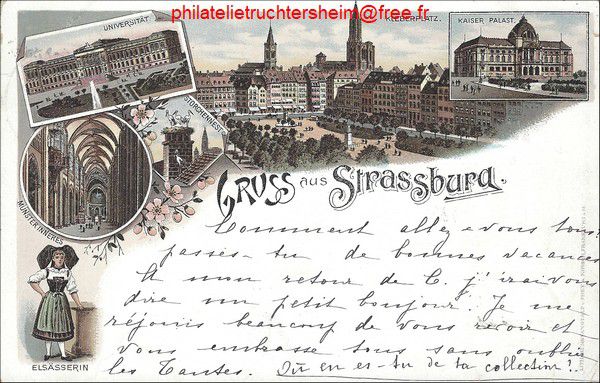 philatelietruchtersheim@free.fr
UNIVERSITÄT
KLEBERPLATZ.
KAISER PALAST.
STORCHENNEST
MÜNSTER INNERES
ELSÄSSERIN
GRUSS aus Strassburg.
Comment allez-vous tous?
passes-tu de bonnes vacances
A mon retour de C. j'irai vous
dire un petit bonjour. Je me
réjouis beaucoup de vous revoir et
vous embrasse tous sans oublier
les Tantes. Où en es-tu de ta collection?